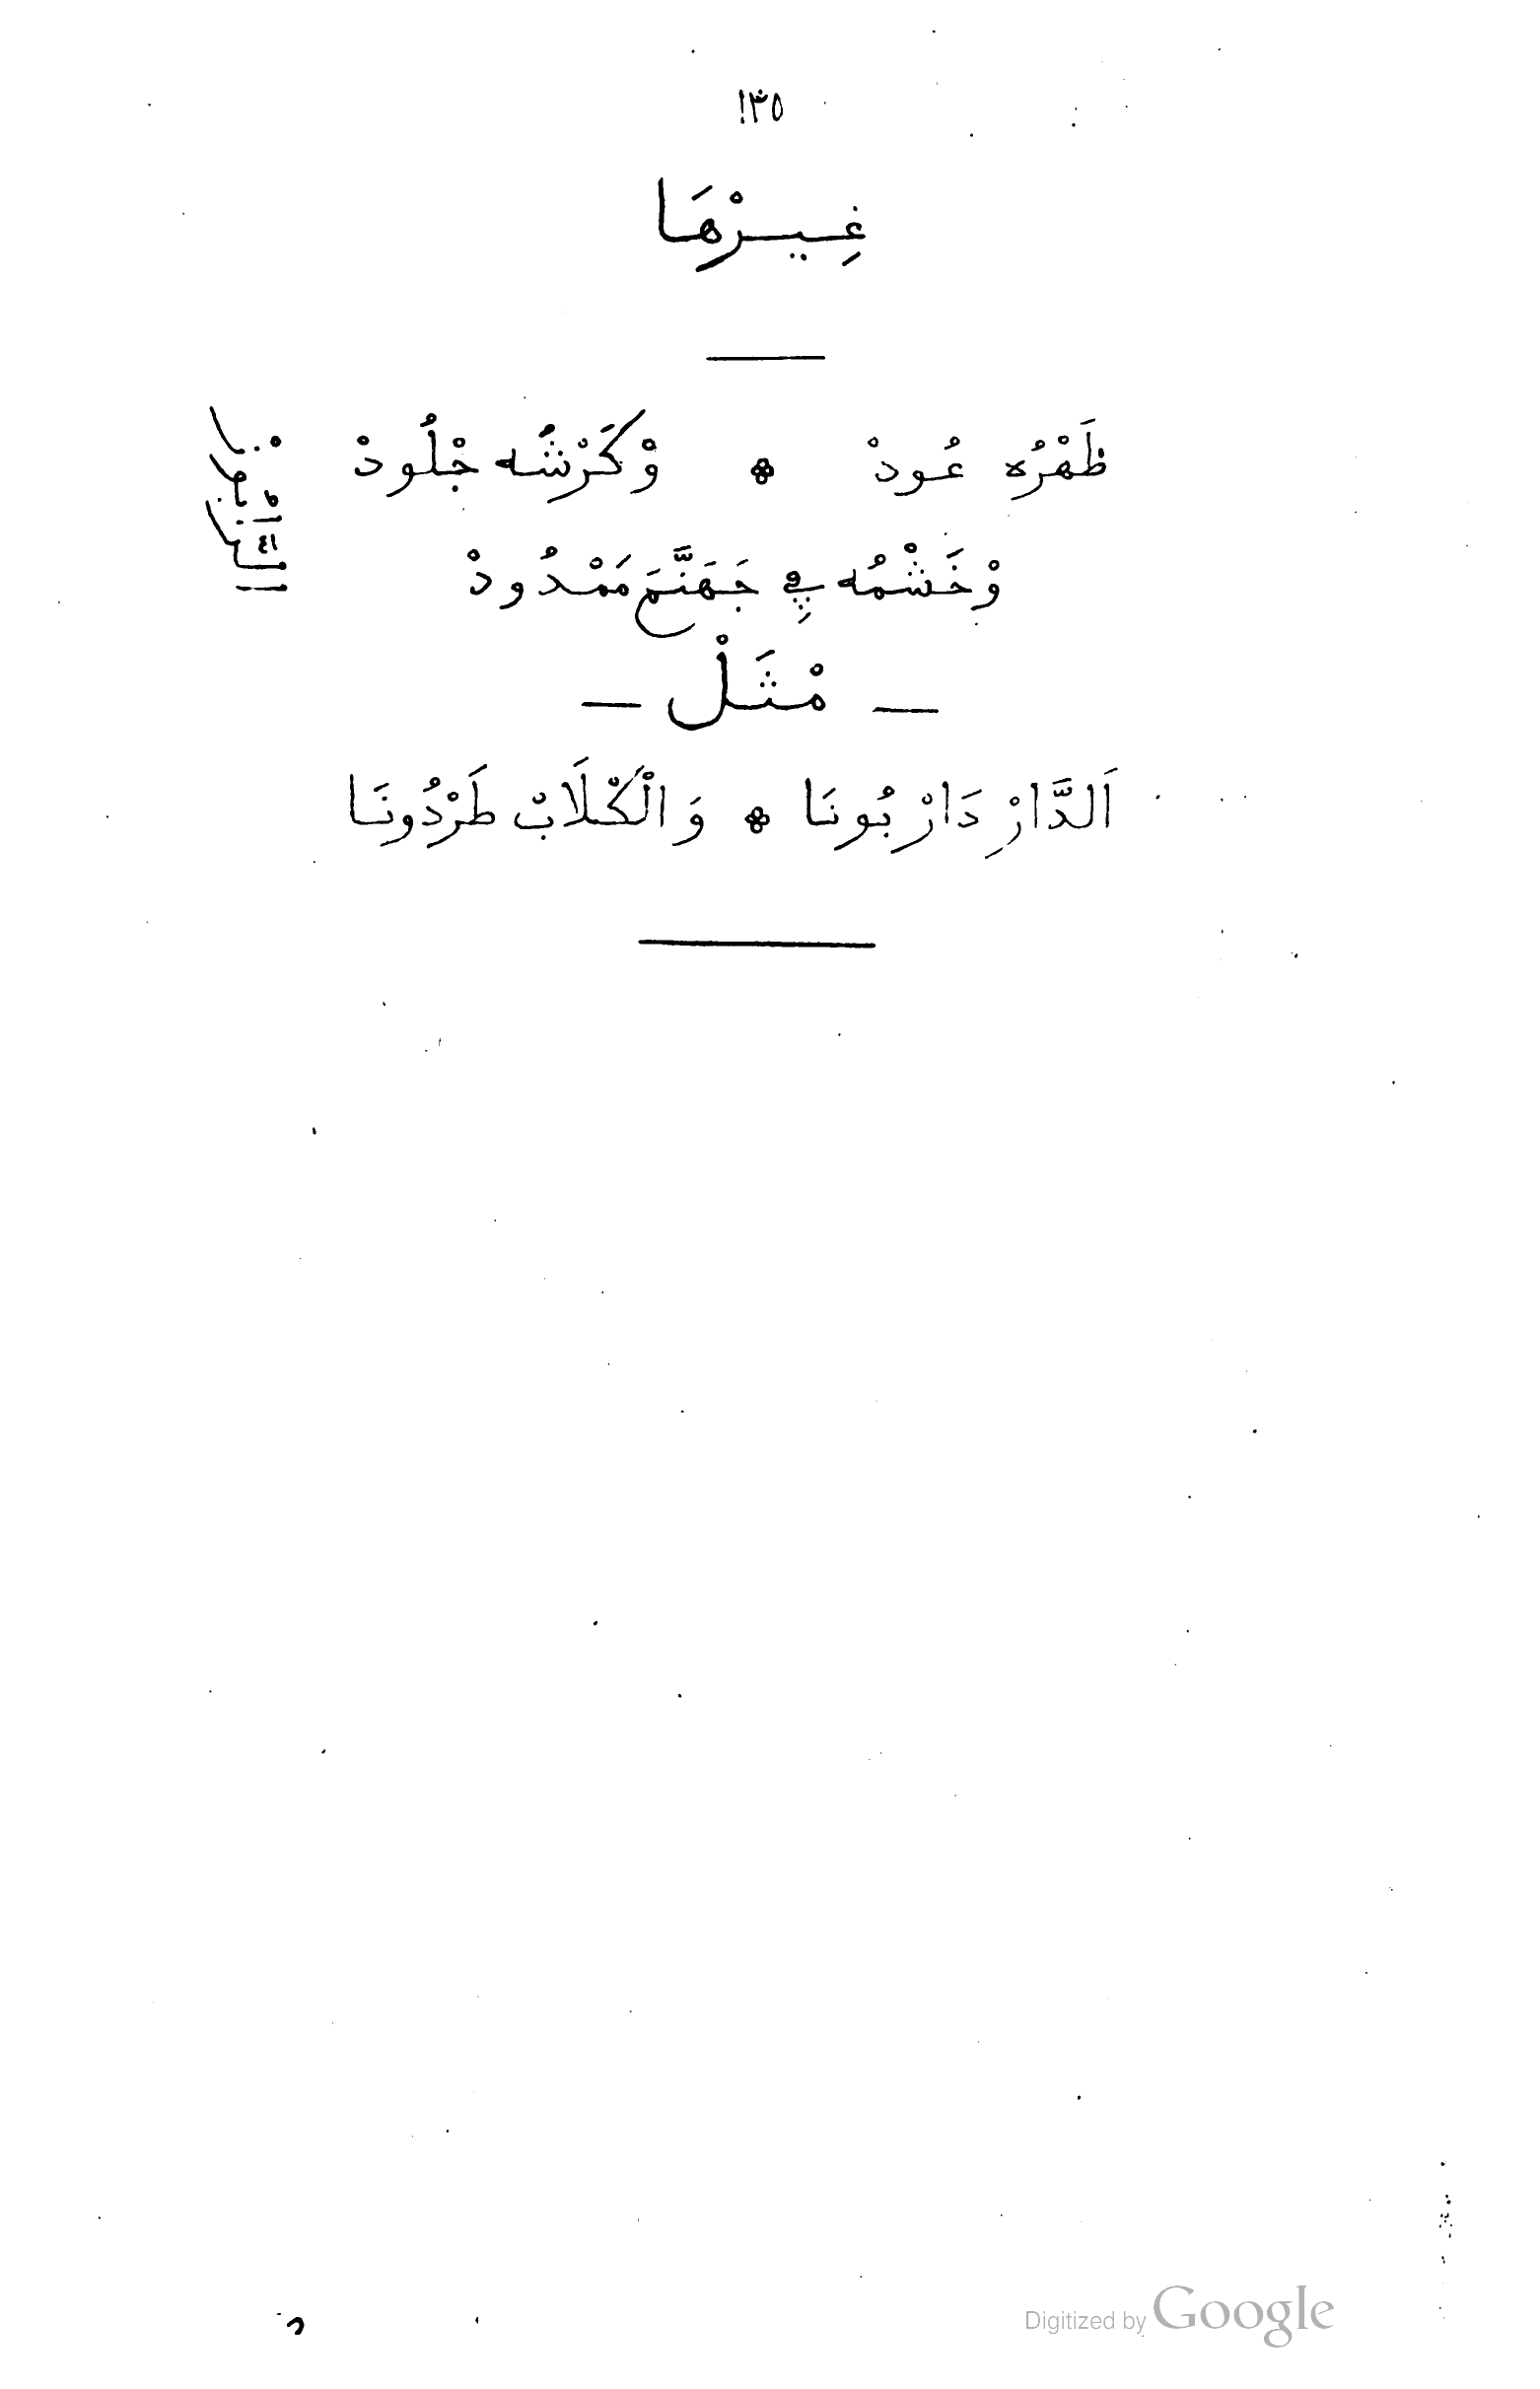 ١٣٥
غِيرْهَا
ظَهْرُه عُودْ * وْكَرْشُه جْلُودْ
وْخَشْمُه فِي جَهَنَّمَ مَمْدُودْ
— مْثَلْ —
اَلدَّارْ دَارْ بُونَا * وَالْكْلَابْ طَرْدُونَا
Digitized by Google